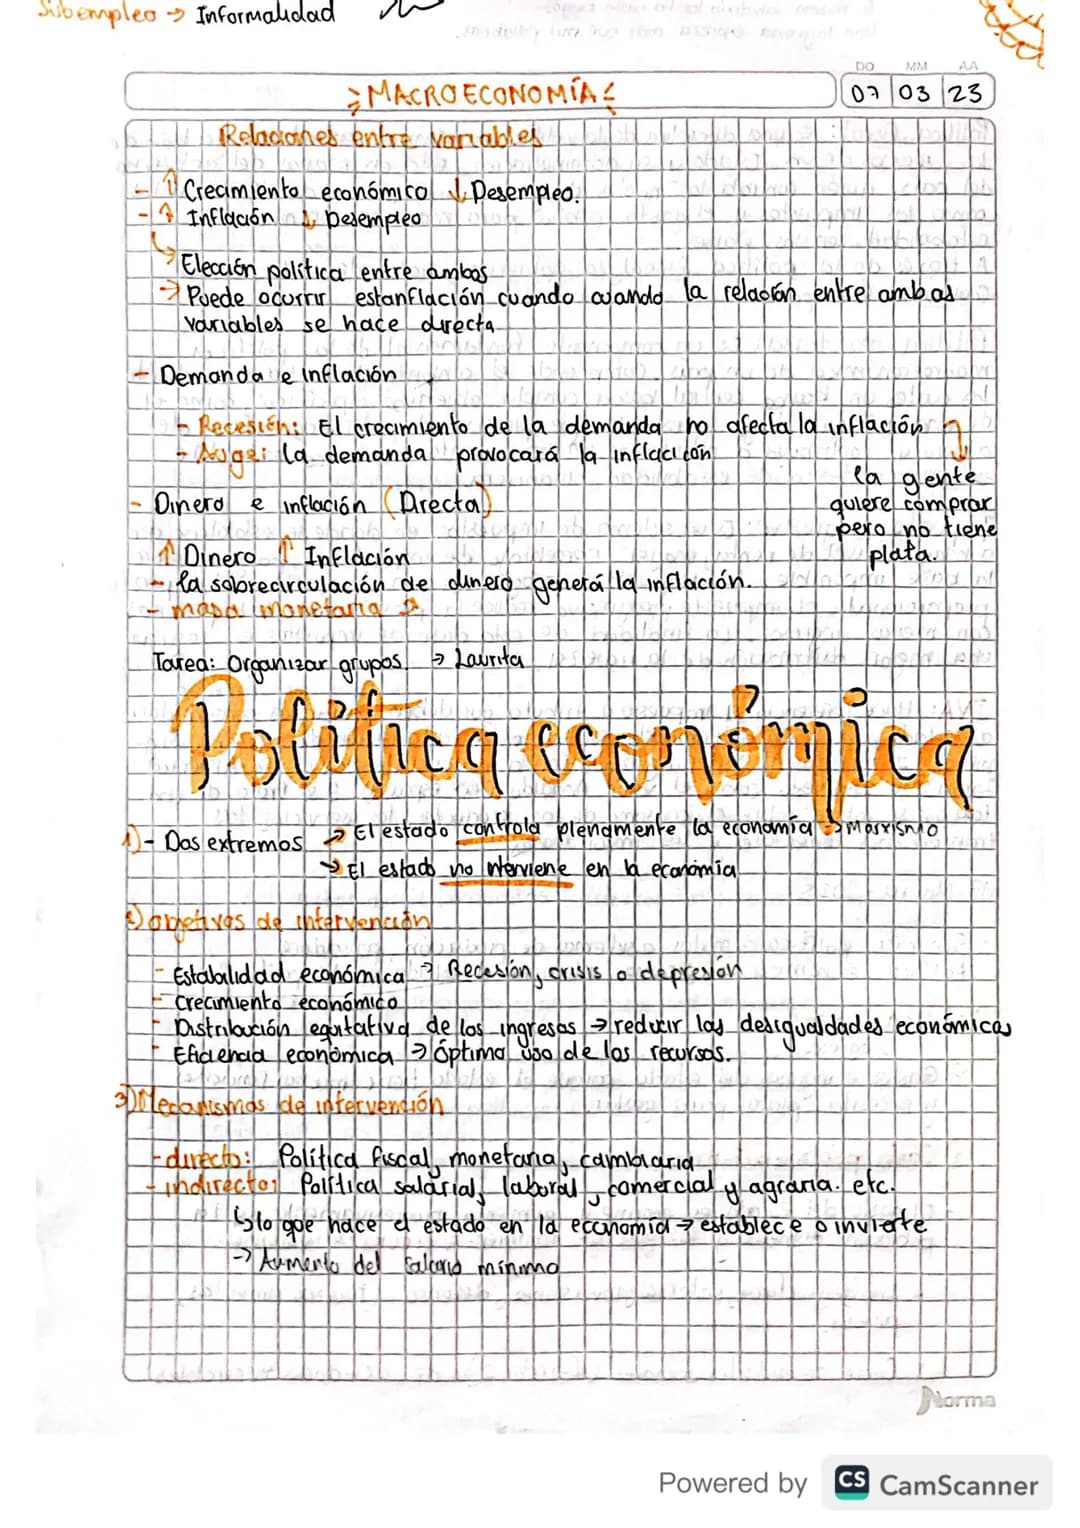 Subempleo → Informalidad
DO MM AA
MACROECONOMÍA
07 03 23
Relaciones entre variables
- ↑ Crecimiento económico ↓ Desempleo.
- ↑ Inflación ↓ Desempleo
Elección política entre ambos
→ Puede ocurrir estanflación cuando cuando la relación entre ambas
variables se hace directa
- Demanda e inflación
- Recesión: El crecimiento de la demanda no afecta la inflación
- Auge: la demanda provocará la inflación
la gente
quiere comprar
pero no tiene
plata.
- Dinero e inflación (Directa)
↑ Dinero ↑ Inflación
- la sobrecirculación de dinero genera la inflación.
- masa monetaria
Tarea: Organizar grupos → Laurita
Política económica
1) - Dos extremos → El estado controla plenamente la economía → Marxismo
→ El estado no interviene en la economía
2) objetivos de intervención
- Estabalidad económica → Recesión, crisis o depresión
- Crecimiento económico
- Distribución equitativa de los ingresos → reducir las desigualdades económicas
- Eficiencia económica → Óptimo uso de los recursos.
3) Mecanismos de intervención
- directo: Política fiscal, monetaria, cambiaria
- indirecto: Política salarial, laboral, comercial y agraria. etc.
↳ lo que hace el estado en la economía → establece o invierte
→ Aumento del salario mínimo
Norma
Powered by CS CamScanner